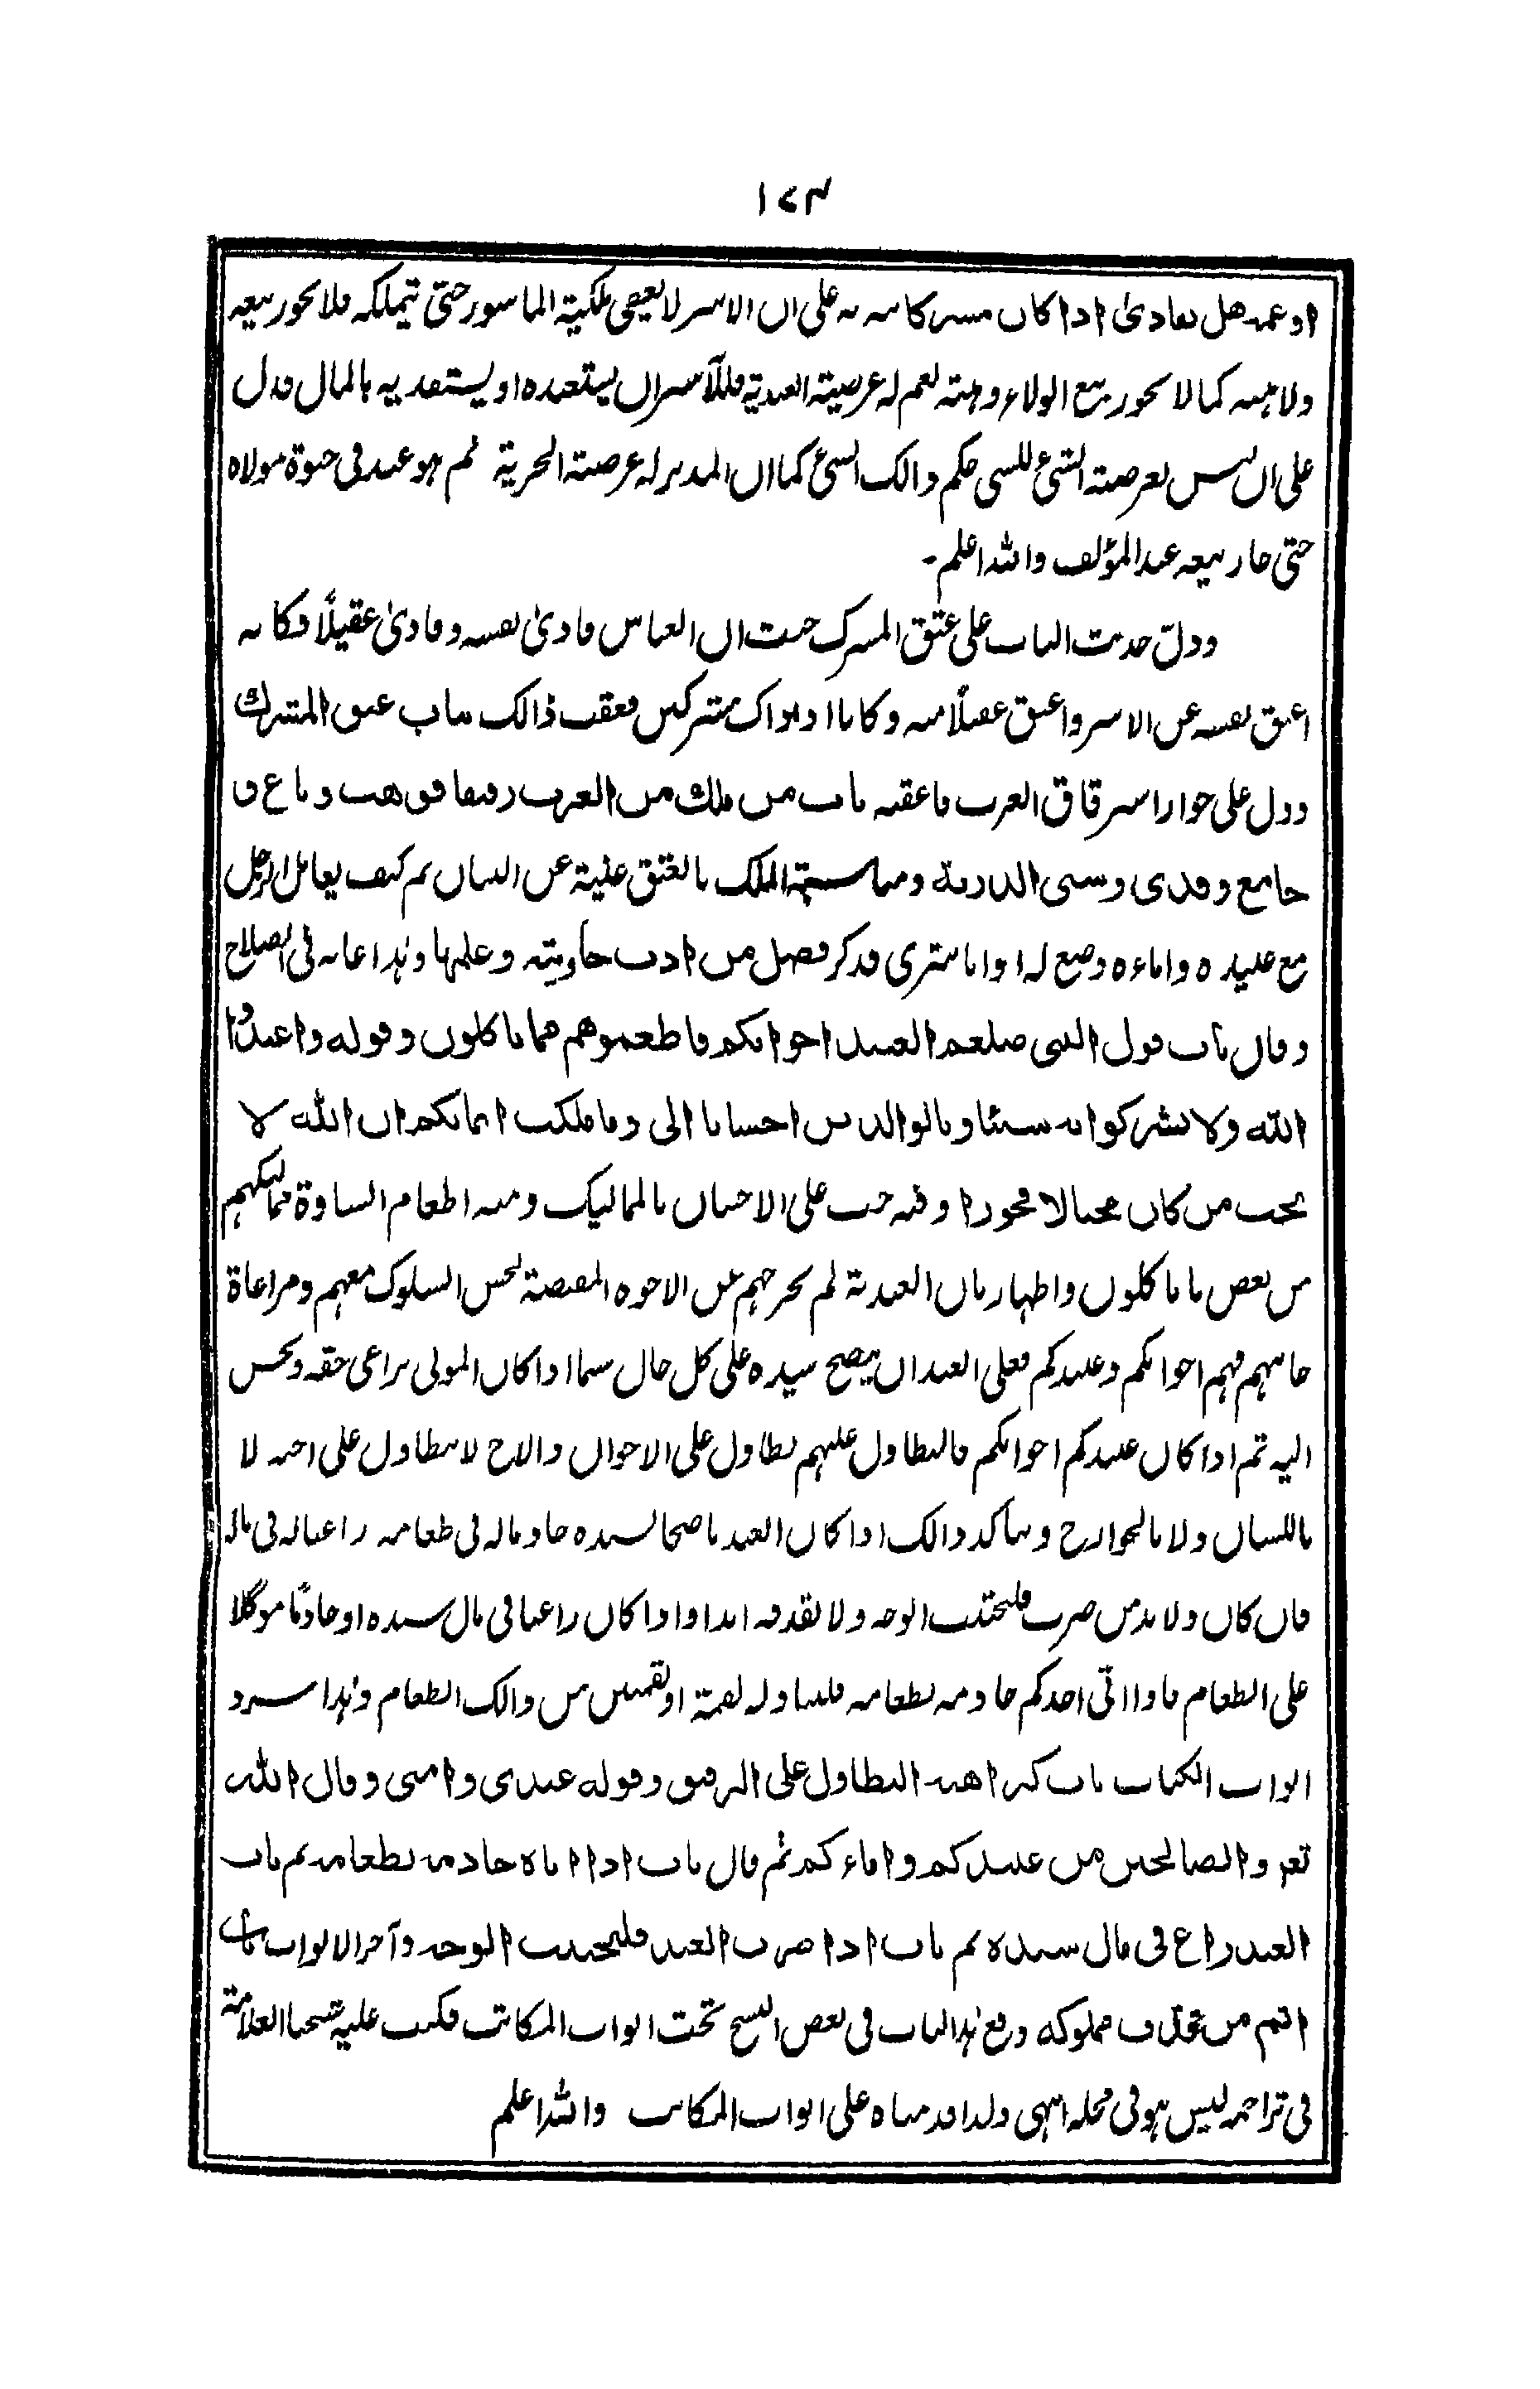 ١٧٣
او عمه هل يفادىٰ اذا كان مشركا نبه به على ان الاسر لا يقتضى ملكية الماسور حتى يتملكه فلا يجوز بيعه
ولا هبته كما لا يجوز بيع الولاء وهبته نعم له عرضية العبدية فللآسر ان يستعبده او يستفديه بالمال فدل
على ان ليس لعرضية الشئ للشئ حكم ذالك الشئ كما ان المدبر له عرضية الحرية ثم هو عبد فى حيوة مولاه
حتى جاز بيعه عند المؤلف والله اعلم۔
ودلّ حديث الباب على عتق المشرك حيث ان العباس فادىٰ نفسه وفادىٰ عقيلاً فكانه
اعتق نفسه عن الاسر واعتق عقيلاً منه وكانا اذ ذاك مشركين فعقب ذالك بباب عتق المشرك
ودل على جواز استرقاق العرب فاعقبه باب من ملك من العرب رقيقا فوهب وباع و
جامع وفدى وسبى الذرية ومناسبة الملك بالعتق غنية عن البيان ثم كيف يعامل الرجل
مع عبيده واماءه وضع له ابوابا تترى فذكر فضل من ادب جاريته وعلمها وهذا غاية فى الصلاح
وقال باب قول النبى صلعم العبيد اخوانكم فاطعموهم مما تاكلون وقوله واعبدوا
الله ولا تشركوا به شيئا وبالوالدين احسانا الى وما ملكت ايمانكم ان الله لا
يحب من كان مختالا فخورا وفيه حث على الاحسان بالمماليك ومنه اطعام السادة مماليكهم
من بعض ما ياكلون واظهار بان العبدية لم تخرجهم عن الاخوة المقتضية لحسن السلوك معهم ومراعاة
جانبهم فهم اخوانكم وعبيدكم فعلى العبد ان ينصح سيده على كل حال سيما اذا كان المولى يراعى حقه ويحسن
اليه ثم اذا كان عبيدكم اخوانكم فالتطاول عليهم تطاول على الاخوان والاخ لا يتطاول على اخيه لا
باللسان ولا بالجوارح ويتاكد ذالك اذا كان العبد ناصحا لسيده خادما له فى طعامه راعيا له فى ماله
فان كان ولا بد من ضرب فليجتنب الوجه ولا يقذفه ابدا واذا كان راعيا فى مال سيده او خادمًا موكلا
على الطعام فاذا اتى احدكم خادمه بطعامه فليناوله لقمة او لقمتين من ذالك الطعام وهذا سرد
ابواب الكتاب باب كراهية التطاول على الرقيق وقوله عبدى وامتى وقال الله
تعر والصالحين من عبادكم واماءكم ثم قال باب اذا اتاه خادمه بطعامه ثم باب
العبد راع فى مال سيده ثم باب اذا ضرب العبد فليجتنب الوجه وآخر الابواب باب
اثم من قذف مملوكه ووقع هذا الباب فى بعض النسخ تحت ابواب المكاتب فكتب عليه شيخنا العلامة
فى تراجمه ليس هو فى محله انتهى ولذا قدمناه على ابواب المكاتب والله اعلم